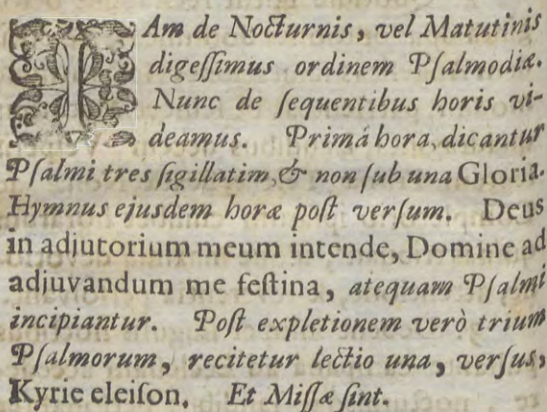 IAm de Nocturnis, vel Matutinis
digeſſimus ordinem Pſalmodiæ.
Nunc de ſequentibus horis vi-
deamus. Primâ hora, dicantur
Pſalmi tres ſigillatim, & non ſub una Gloria.
Hymnus ejusdem horæ poſt verſum. Deus
in adjutorium meum intende, Domine ad
adjuvandum me feſtina, atequam Pſalmi
incipiantur. Poſt expletionem verò trium
Pſalmorum, recitetur lectio una, verſus,
Kyrie eleiſon. Et Miſſæ ſint.